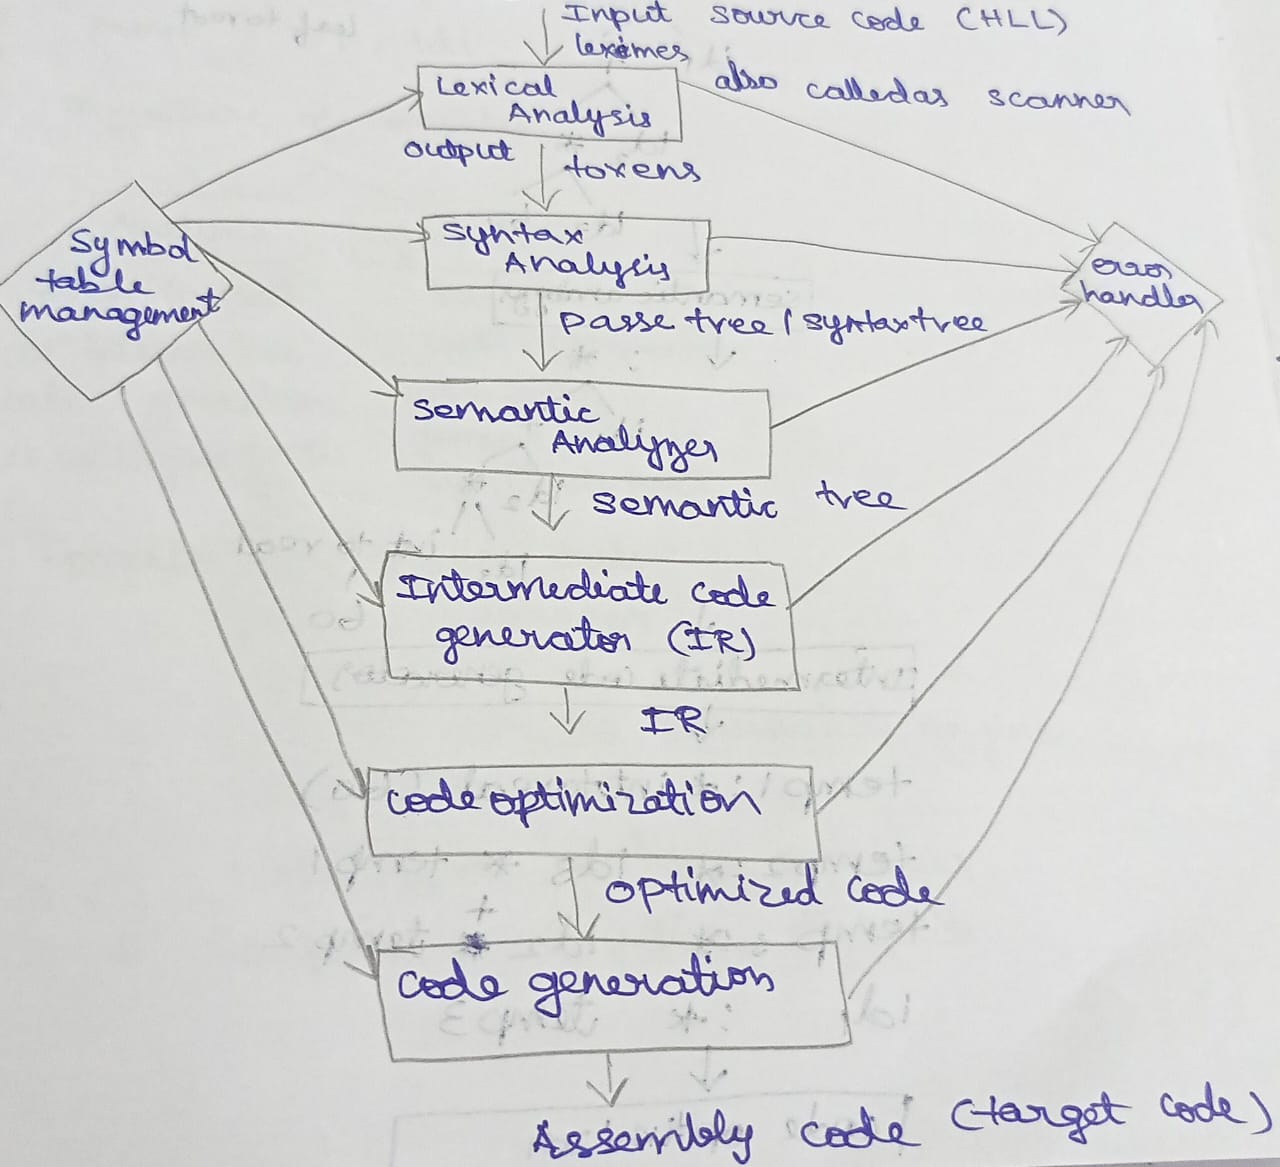 Input source code (HLL)
lexemes
Lexical
Analysis
also calledas scanner
output
tokens
Symbol
table
management
Syntax
Analysis
error
handler
passe tree / syntaxtree
Semantic
Analyzer
Semantic tree
Intermediate code
generator (IR)
IR
code optimization
optimized code
code generation
Assembly code (target code)